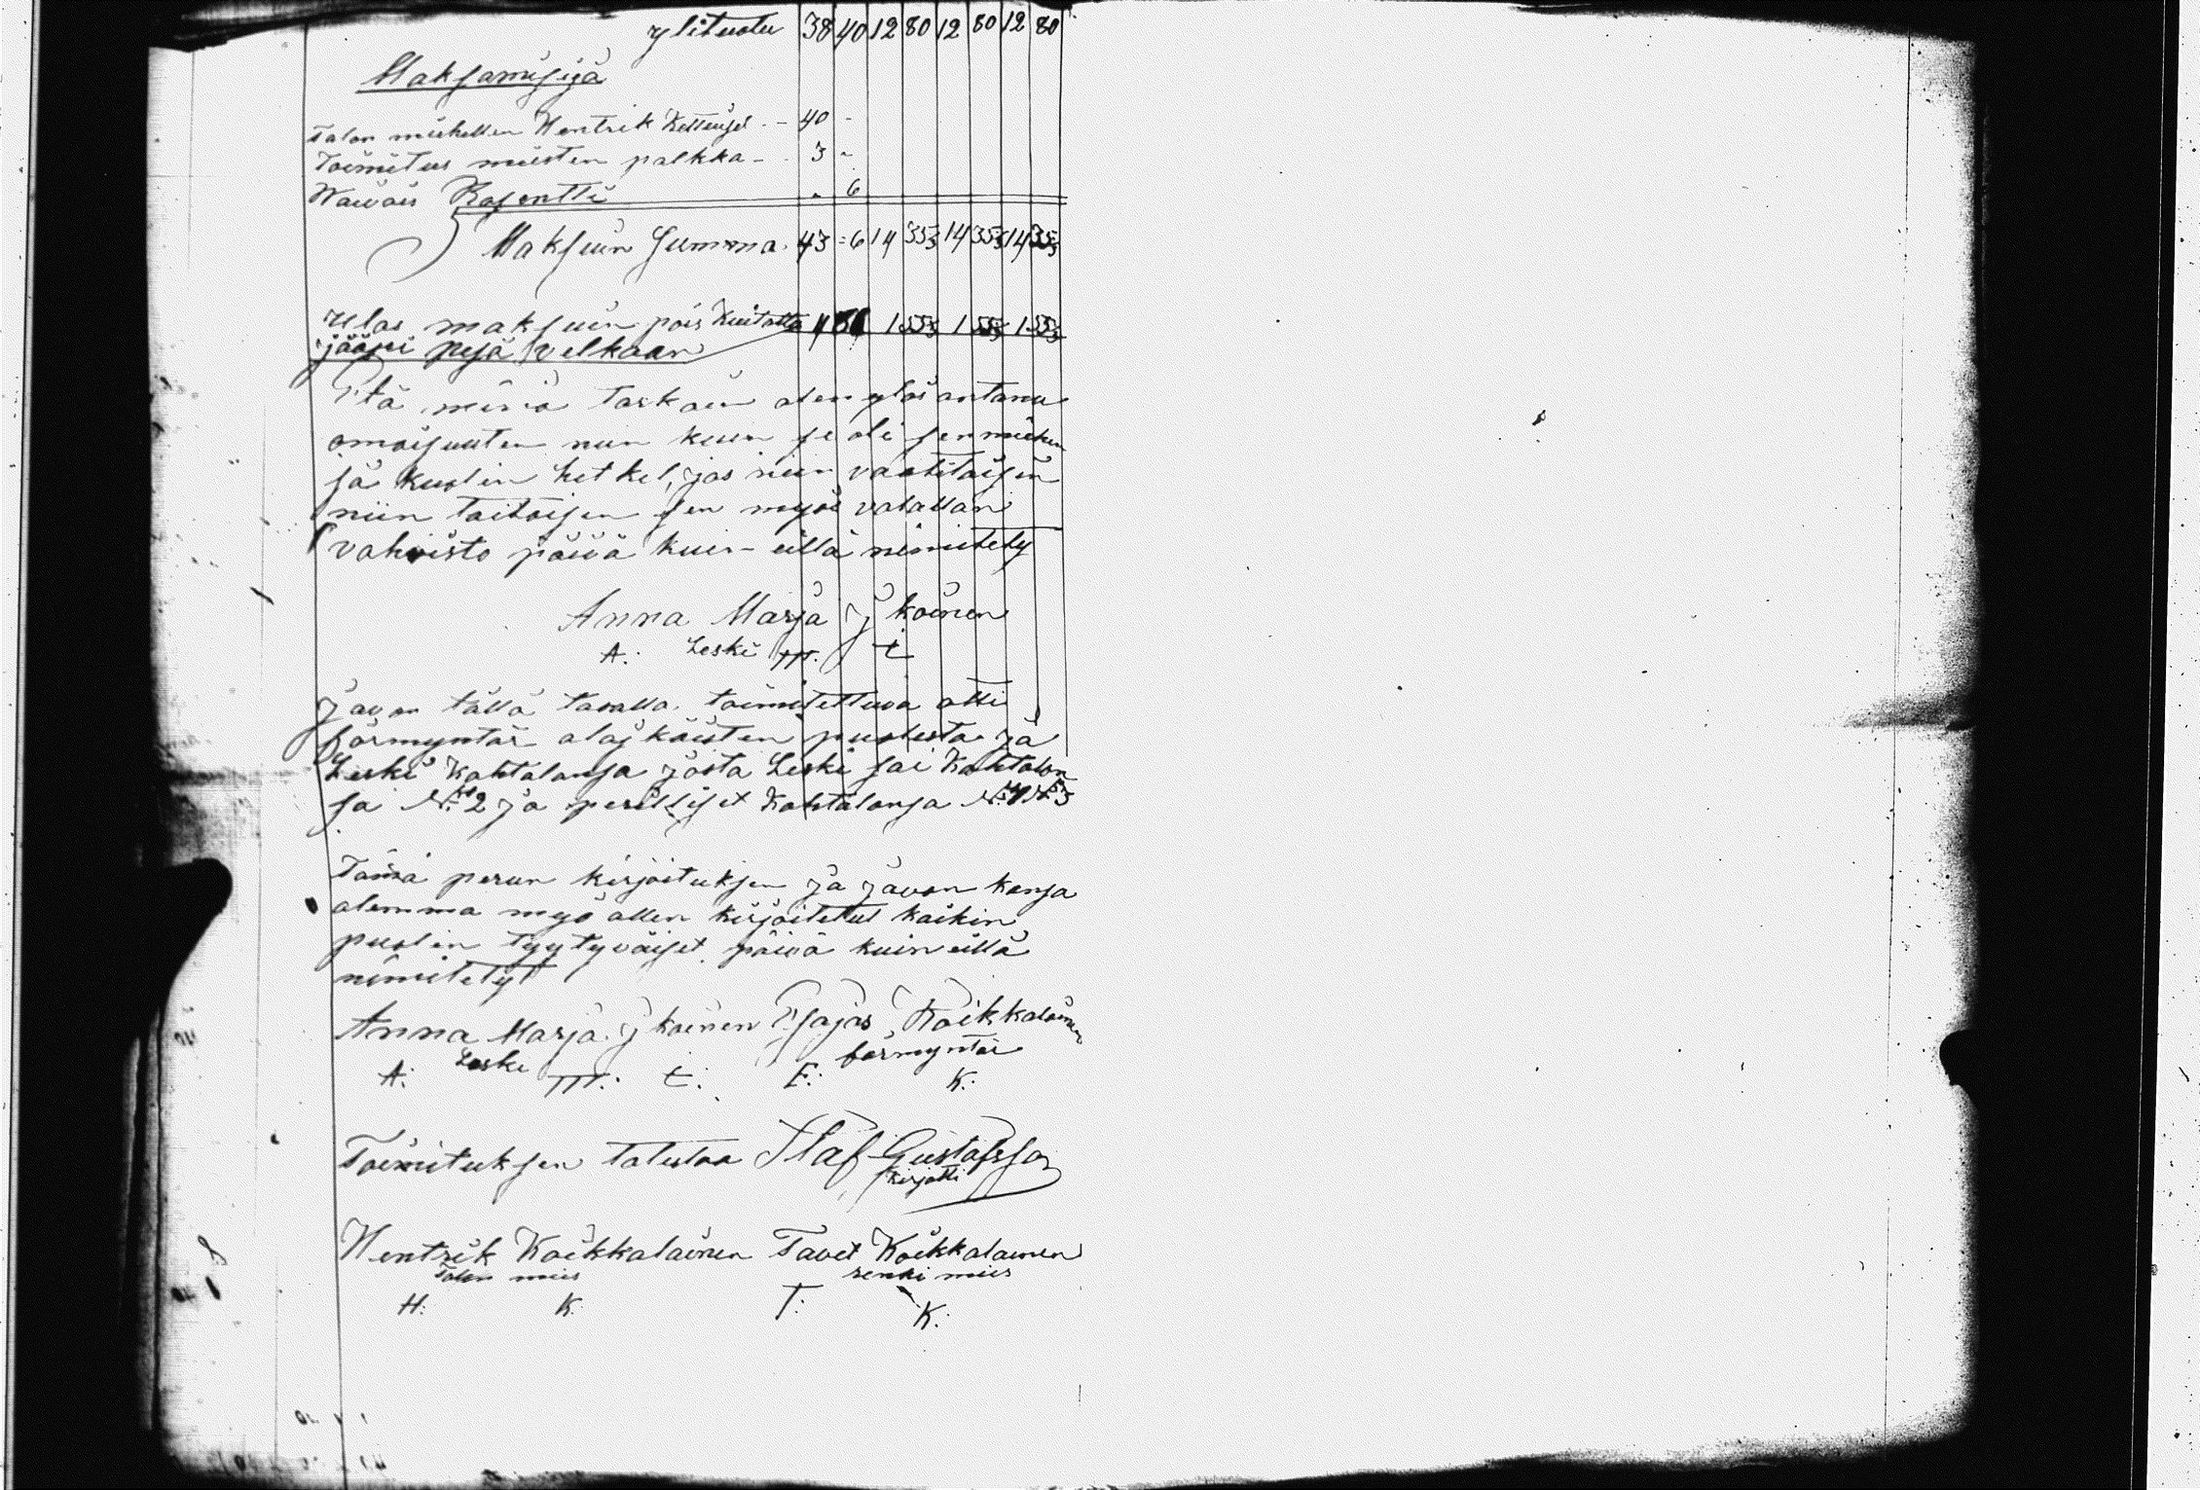 ylituotu 38 40 12 80 12 80 12 80
Maksamisija
Talon miehellen Hentrik - 40 -
Toimitus miesten palkka - 3 -
Waivais Rosentti " 6
Maksuin Summa 43 = 6 14 35⅓ 14 35⅓ 14 35⅓
Ulos maksuin pois kuitattu 1 55⅓ 1 55⅓ 1 55⅓
jääpi pesä velkaan
Etä minä taskain olen ylös antanu
omaisuuten niin kuin se oli sen miehen
sä kuolin hetkel, jos niin vaatitaisen
niin taitaisen sen myös valallan
vahvisto päivä kuin eillä nimitety
Anna Marja Ikoinen
A: Leski M: t
Javon tällä tavalla toimitettuva otti
förmyntär alaj käisten puolesta ja
Leski Kohtalonsa josta Leski sai Kohtalon
sa No 2 ja perilliset Kohtalonsa No 1 No 3
Tämä perun kirjoituksen ja javon kansa
olemma myö allen kirjoitetut kaikin
puolin tyytyväiset päivä kuin eillä
nimitetyt
Anna Marja Ikoinen Esajas Koikkalainen
Leski förmyntär
A: M: t: E: K:
Toimituksen totistaa Staf Gustafsson
kirjotti
Hentrik Koikkalainen Tavet Koikkalainen
Talon mies renki mies
H: K: T: K: